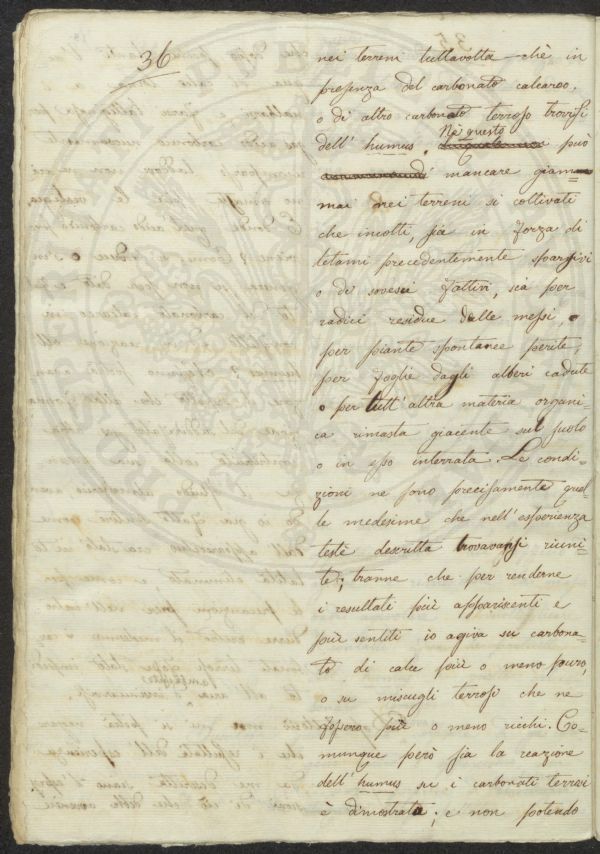 36
nei terreni tuttavolta chè in
presenza del carbonato calcareo,
o di altro carbonato terroso trovisi
dell' humus. Nè questo può
mancare giam-
mai nei terreni sì coltivati
che incolti, sia in forza di
letami precedentemente sparsivi
o di sovesci fattivi, sia per
radici residue delle messi, o
per piante spontanee perite,
per foglie dagli alberi cadute
o per tutt' altra materia organi-
ca rimasta giacente sul suolo
o in esso interrata. Le condi-
zioni ne sono precisamente quel-
le medesime che nell' esperienza
testè descritta trovavansi riuni-
te; tranne che per renderne
i resultati più appariscenti e
più sentiti io agiva su carbona-
to di calce più o meno puro,
o su miscugli terrosi che ne
fossero più o meno ricchi. Co-
munque però sia la reazione
dell' humus su i carbonati terrosi
è dimostrata; e non potendo